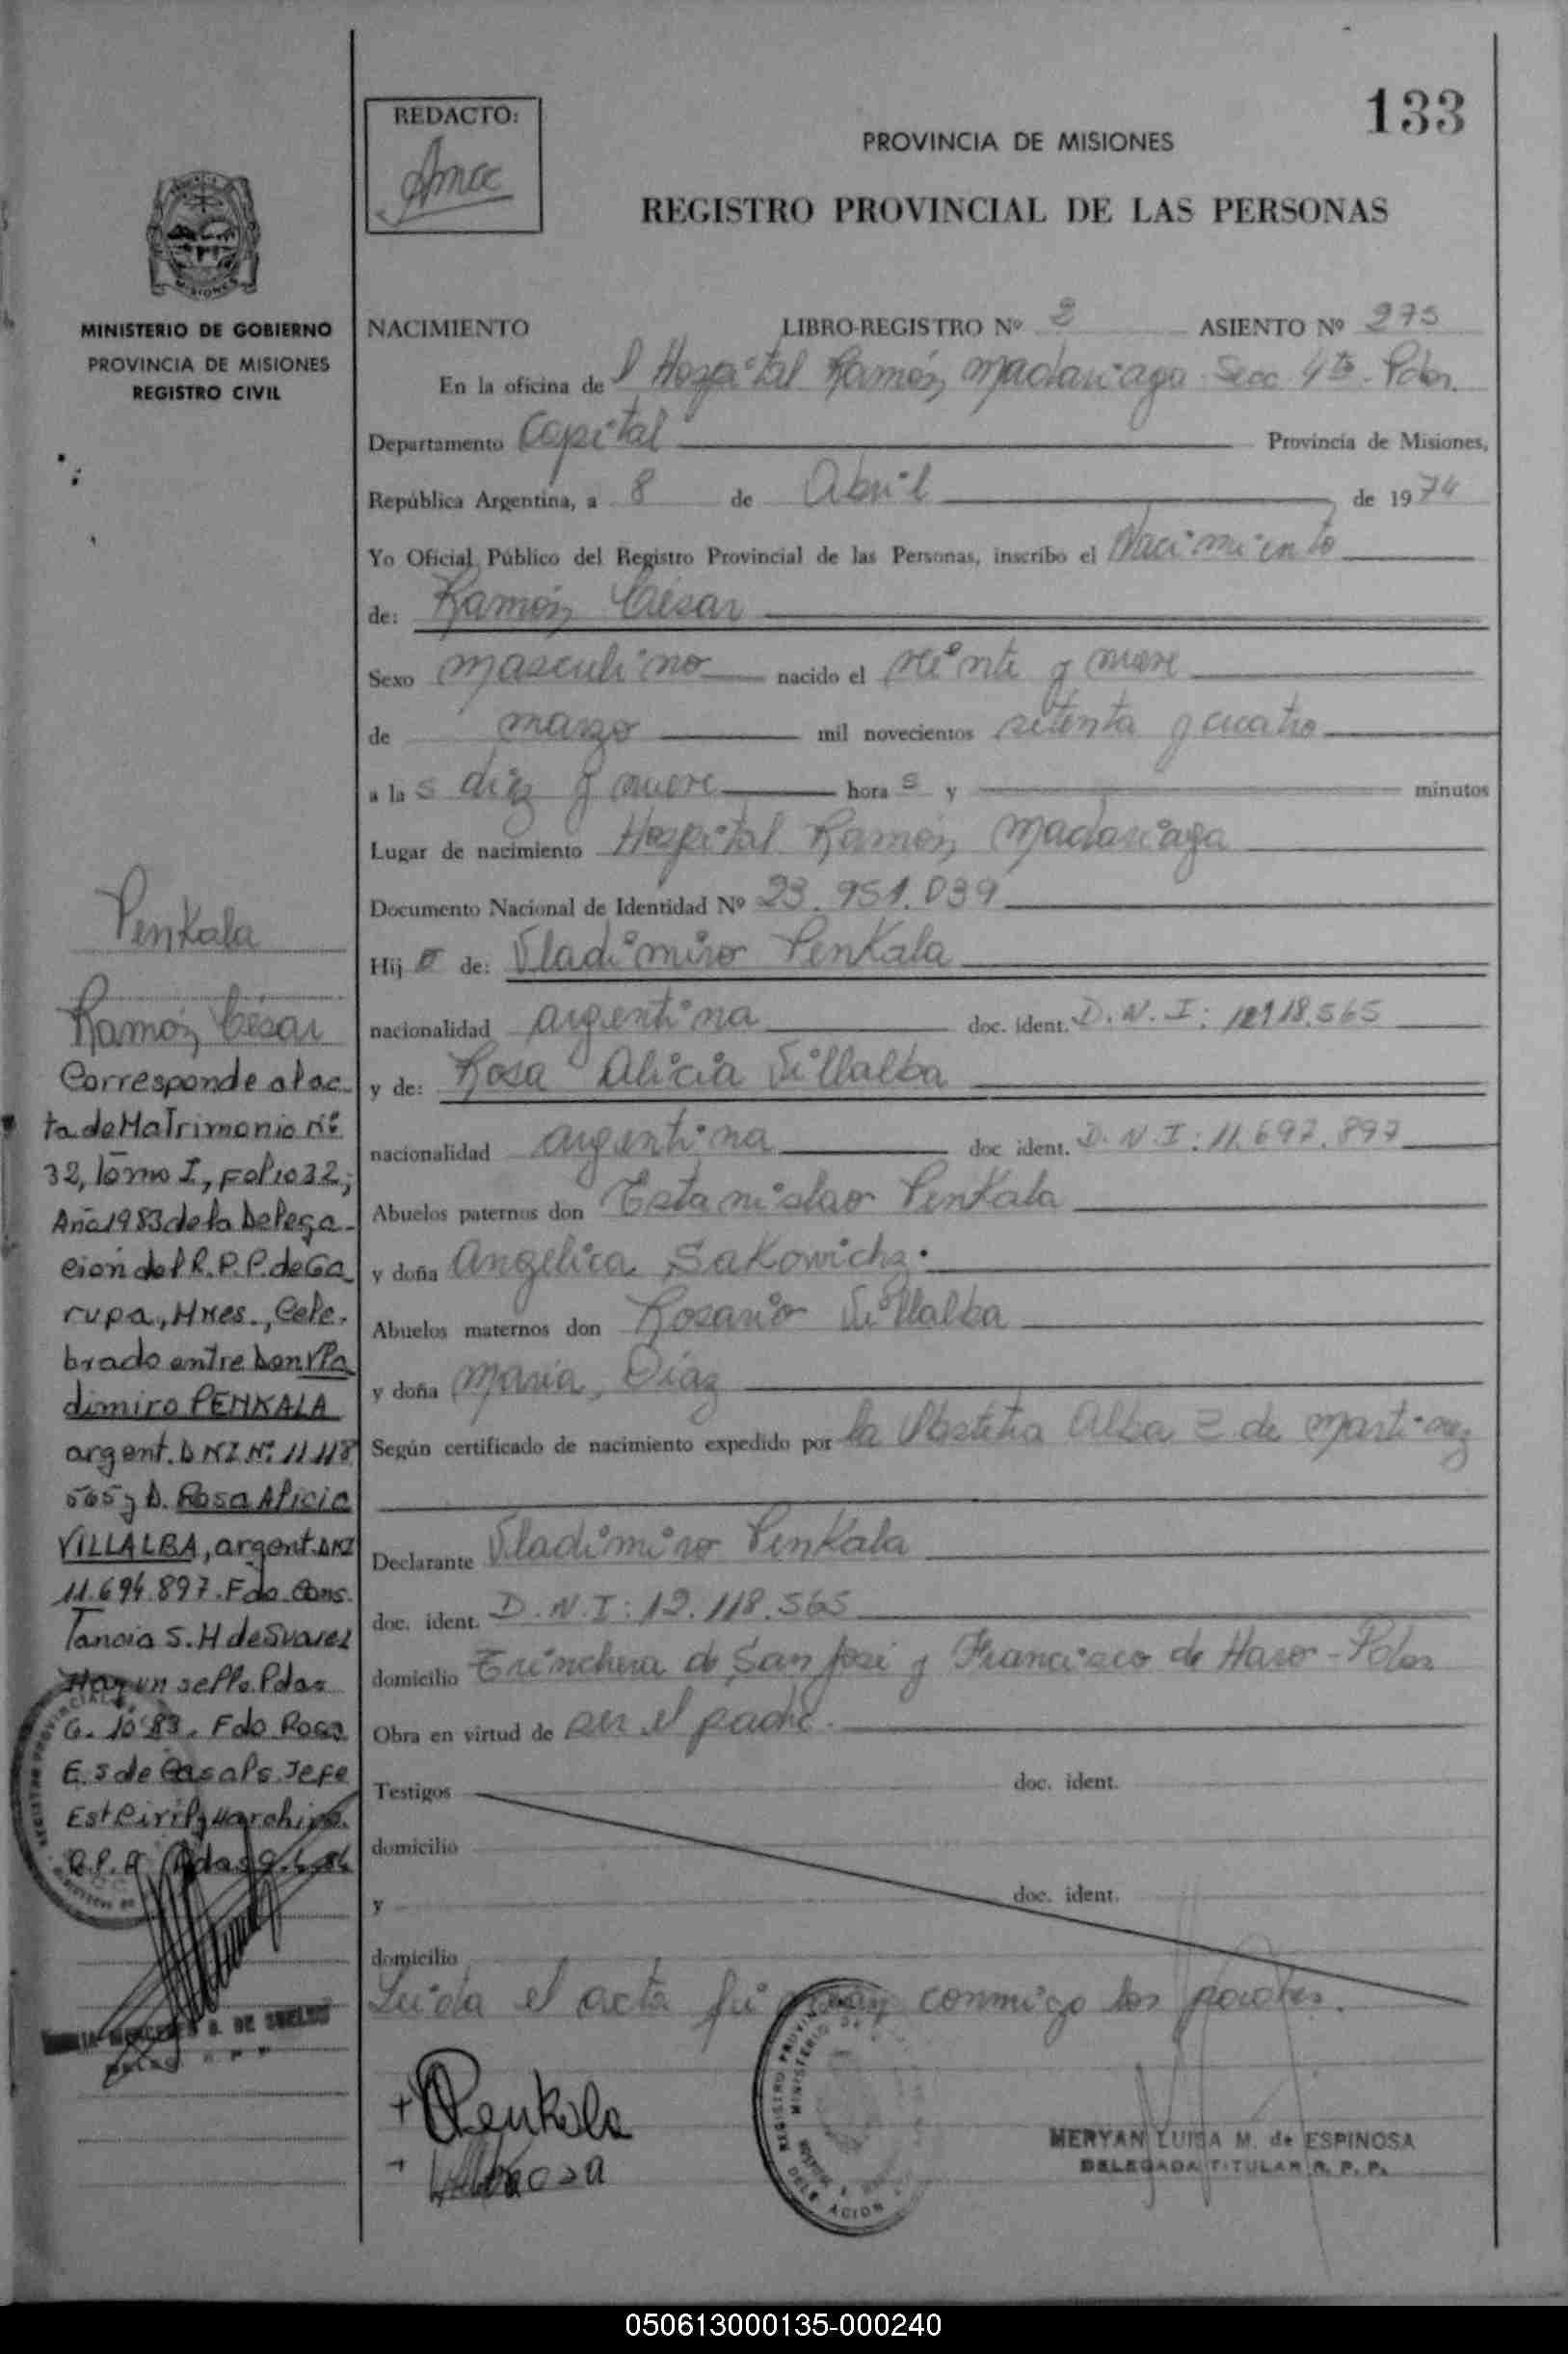 133
REDACTO:
PROVINCIA DE MISIONES
REGISTRO PROVINCIAL DE LAS PERSONAS
MINISTERIO DE GOBIERNO
PROVINCIA DE MISIONES
REGISTRO CIVIL
NACIMIENTO LIBRO-REGISTRO Nº 2 ASIENTO Nº 275
En la oficina de l Hospital Ramón Madariaga Secc 4ta - Pdas.
Departamento Capital Provincia de Misiones,
República Argentina, a 8 de Abril de 1974
Yo Oficial Público del Registro Provincial de las Personas, inscribo el Nacimiento
de: Ramón César
Sexo masculino nacido el veinte y nueve
de marzo mil novecientos setenta y cuatro
a la s diez y nueve hora s y minutos
Lugar de nacimiento Hospital Ramón Madariaga
Documento Nacional de Identidad Nº 23.951.039
Hij o de: Vladimiro Penkala
nacionalidad argentina doc. ident. D.N.I: 12118.565
y de: Rosa Alicia Villalba
nacionalidad argentina doc ident. D.N.I: 11.697.897
Abuelos paternos don Estanislao Penkala
y doña Angélica Sakowicz.
Abuelos maternos don Rosario Villalba
y doña María Díaz
Según certificado de nacimiento expedido por la Obstetra Alba Z de Martinez
Declarante Vladimiro Penkala
doc. ident. D.N.I: 12.118.565
domicilio Trinchera de San José y Francisco de Haro - Pdas
Obra en virtud de ser el padre.
Testigos doc. ident.
domicilio
y doc. ident.
domicilio
Leida el acta conmigo los padres.
Penkala
MERYAN LUISA M. de ESPINOSA
DELEGADA TITULAR R. P. P.
Penkala
Ramón César
Corresponde al ac-
ta de Matrimonio Nº
32, Tomo I, Folio 32,
Año 1983 de la Delega-
cion del R.P.P. de Ga
rupa, Mnes., Cele-
brado entre Don Vla
dimiro PENKALA
argent. DNI Nº 11 118
565 y D. Rosa Alicia
VILLALBA, argent. DNI
11.694.897. Fdo. Cons.
Tancia S. H de Suarez
Hay un sello. Pdas
6. 10 83. Fdo Rosa
E. S de Casals. Jefe
Est Civil y Archivo.
R.P.P.
DE SUELDO
050613000135-000240